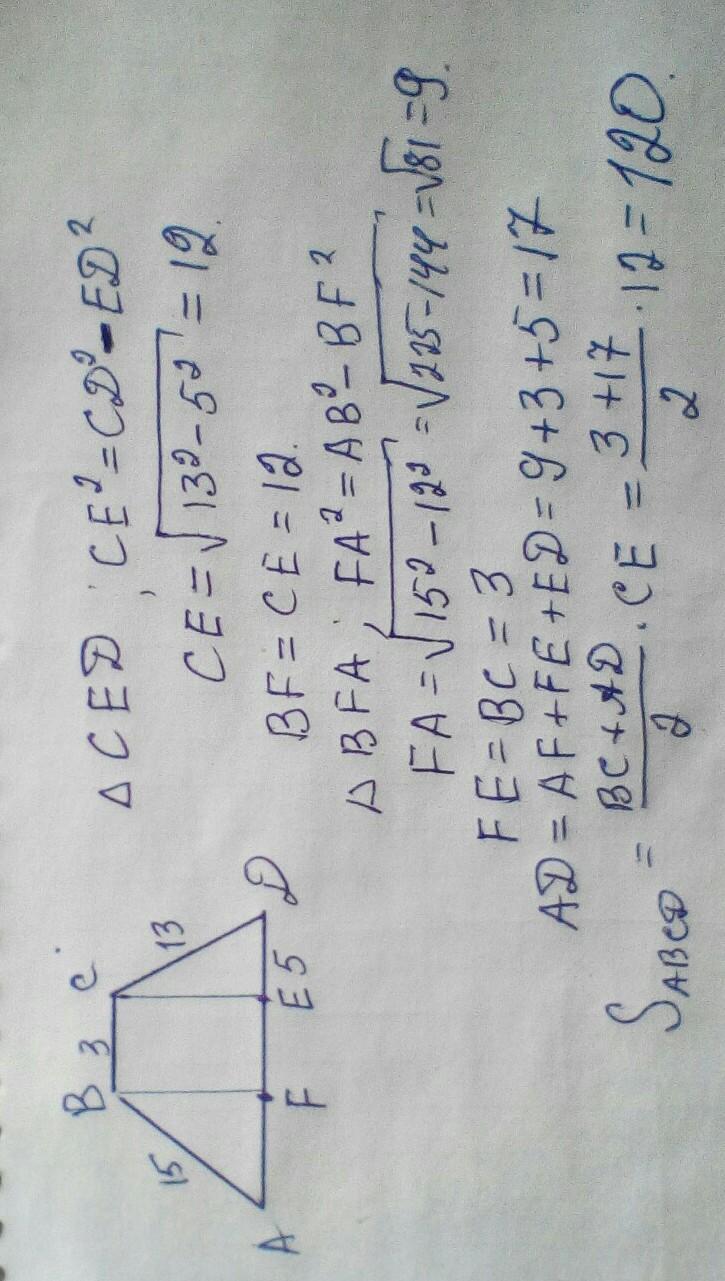 B 3 C
15 13
A F E 5 D
△CED, CE² = CD² - ED²
CE = √13² - 5² = 12.
BF = CE = 12.
△BFA, FA² = AB² - BF²
FA = √15² - 12² = √225 - 144 = √81 = 9.
FE = BC = 3
AD = AF + FE + ED = 9 + 3 + 5 = 17
S_ABCD = (BC + AD)/2 · CE = (3 + 17)/2 · 12 = 120.